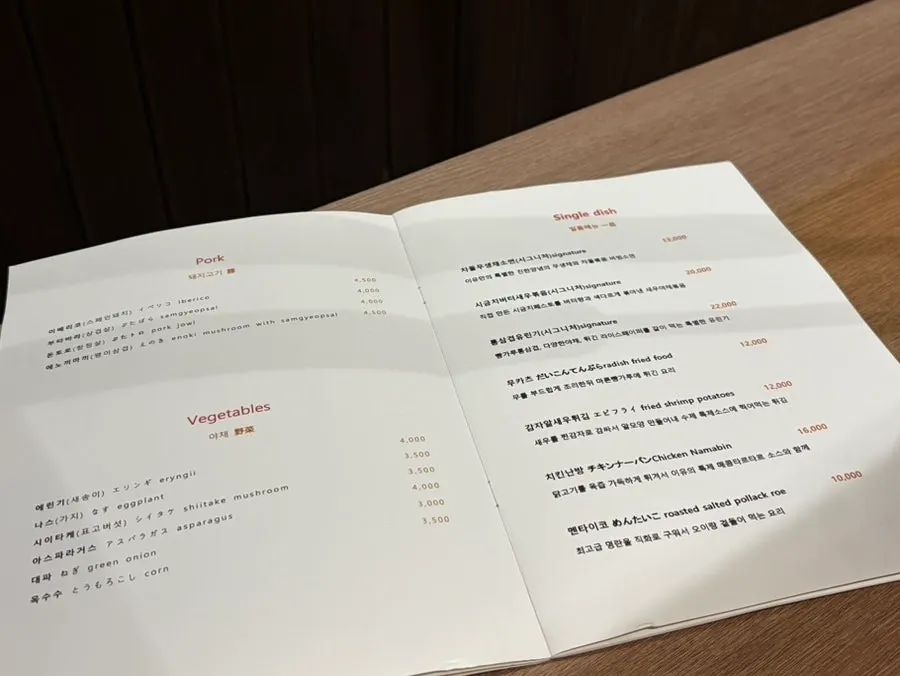 Pork
돼지고기 豚
이베리코(스페인돼지) イベリコ iberico 4,500
부타바라(삼겹살) ぶたばら samgyeopsal 4,000
돈토로(항정살) ぶたトロ pork jowl 4,000
에노끼마끼(팽이삼겹) えのき enoki mushroom with samgyeopsal 4,500
Vegetables
야채 野菜
에린기(새송이) エリンギ eryngii 4,000
나스(가지) なす eggplant 3,500
시이타케(표고버섯) シイタケ shiitake mushroom 3,500
아스파라거스 アスパラガス asparagus 4,000
대파 ねぎ green onion 3,000
옥수수 とうもろこし corn 3,500
Single dish
일품메뉴 一品
차돌무생채소면(시그니처)signature 13,000
이유만의 특별한 진한양념의 무생채와 차돌볶음 비빔소면
시금치버터새우볶음(시그니처)signature 20,000
직접 만든 시금치페스트를 버터향과 색다르게 볶아낸 새우야채볶음
통삼겹유린기(시그니처)signature 22,000
빵가루통삼겹, 다양한야채, 튀긴 라이스페이퍼를 같이 먹는 특별한 유린기
무카츠 だいこんてんぷらradish fried food 12,000
무를 부드럽게 조리한뒤 마른빵가루에 튀긴 요리
감자알새우튀김 エビフライ fried shrimp potatoes 12,000
새우를 찐감자로 감싸서 알모양 만들어내 수제 특제소스에 찍어먹는 튀김
치킨난방 チキンナーバンChicken Namabin 16,000
닭고기를 육즙 가득하게 튀겨서 이유의 특제 매콤타르타르 소스와 함께
멘타이코 めんたいこ roasted salted pollack roe 10,000
최고급 명란을 직화로 구워서 오이랑 곁들어 먹는 요리